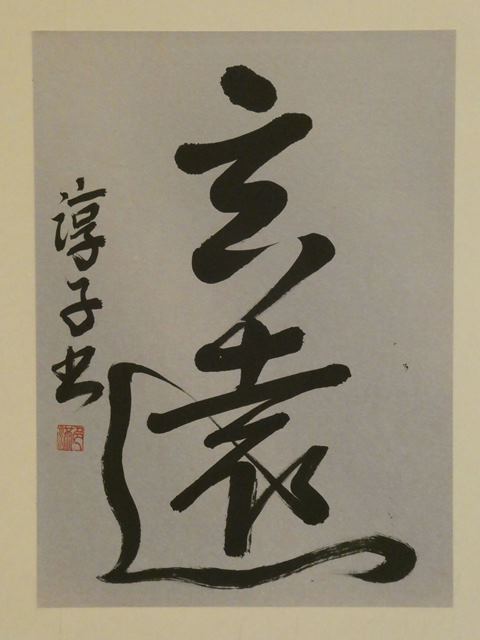 玄遠
淳子书